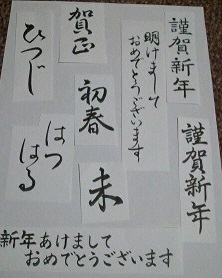 謹賀新年
謹賀新年
明けまして
おめでとうございます
賀正
初春
未
ひつじ
はつ
はる
新年あけまして
おめでとうございます